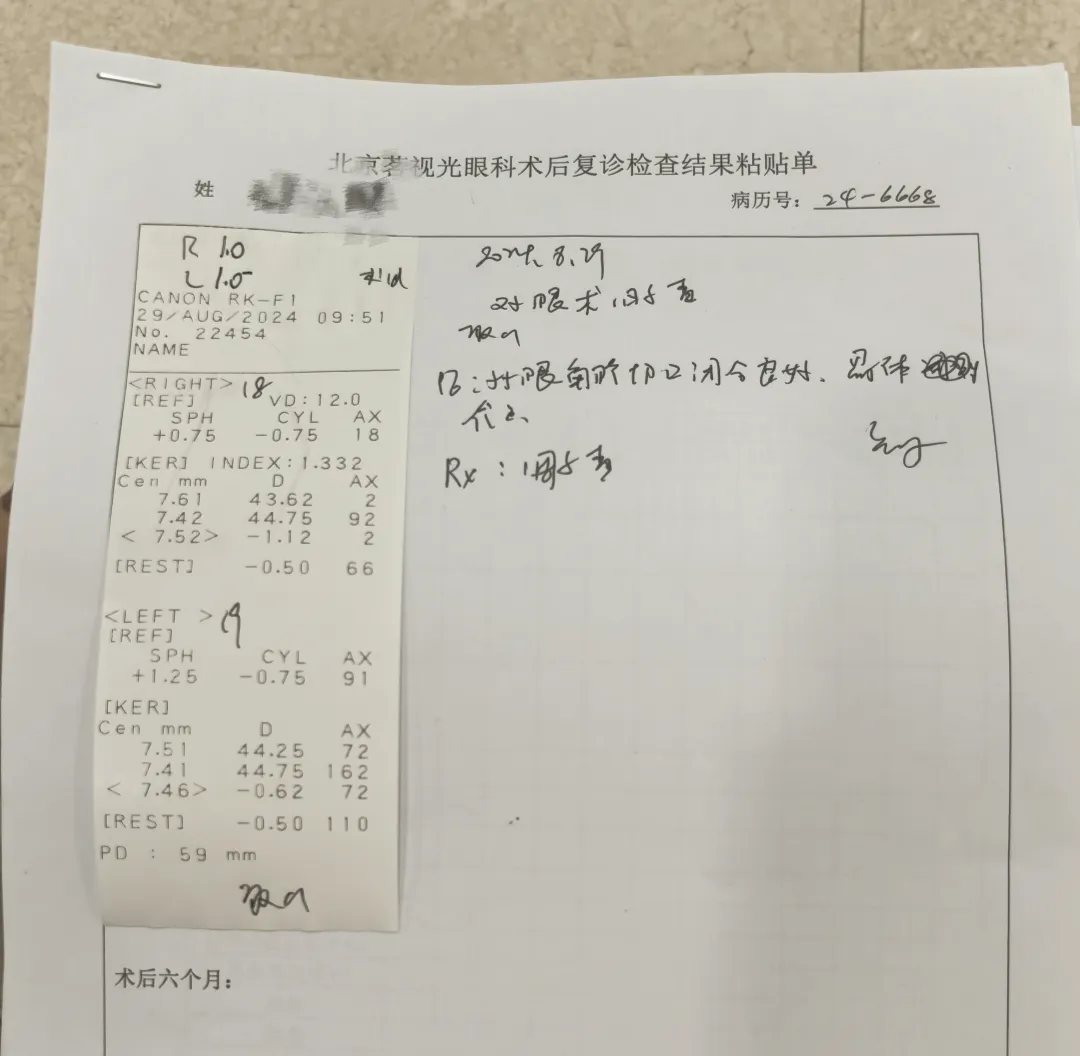 北京茗视光眼科术后复诊检查结果粘贴单
姓
病历号: 24-6668
R 1.0
L 1.5
CANON RK-F1
29/AUG/2024 09:51
No. 22454
NAME
<RIGHT> 18
[REF] VD:12.0
SPH CYL AX
+0.75 -0.75 18
[KER] INDEX:1.332
Cen mm D AX
7.61 43.62 2
7.42 44.75 92
< 7.52> -1.12 2
[REST] -0.50 66
<LEFT > 19
[REF]
SPH CYL AX
+1.25 -0.75 91
[KER]
Cen mm D AX
7.51 44.25 72
7.41 44.75 162
< 7.46> -0.62 72
[REST] -0.50 110
PD : 59 mm
2024.8.29
眼术
眼角 切口闭合良好.
Rx:
术后六个月: